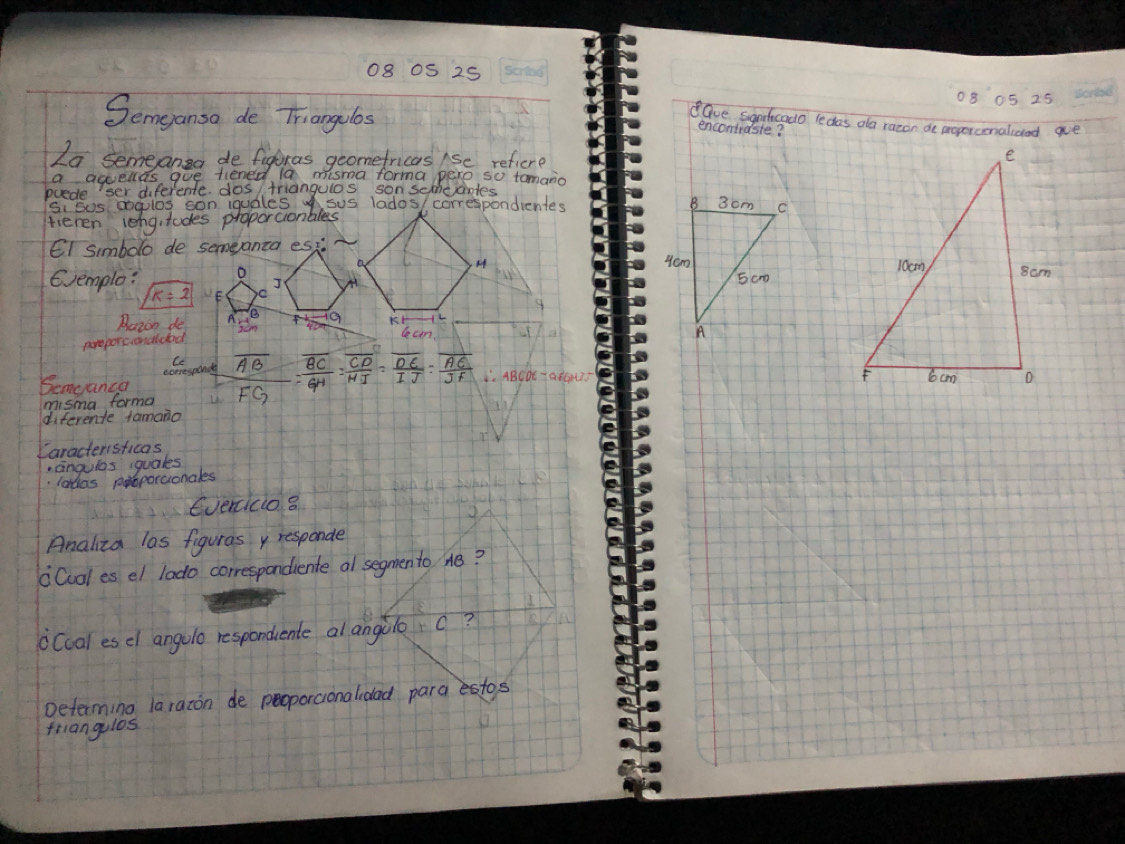 08 05 25 Scribe
Semejansa de Triangulos
La semejansa de figuras geometricas se refiere
a aquellas que tienen la misma forma pero su tamaño
puede ser diferente. dos triangulos son semejantes
Si sus angulos son iguales y sus lados correspondientes
tienen longitudes proporcionables
El simbolo de semejanza es: ~
Ejemplo:
K = 2
Razón de
D
E C
A B
2cm
J H
F G
4cm
M
K L
6cm
Le
corresponde
AB
FG
= BC = CD = DE = AE
GH HI IJ JF
Semejanza
misma forma
diferente tamaño
Caracteristicas
• ángulos iguales
• lados proporcionales
Ejercicio:
Analiza las figuras y responde
¿Cual es el lado correspondiente al segmento AB?
¿Cual es el angulo respondiente al angulo C?
Determina la razón de proporcionalidad para estos
triangulos
08 05 25 Scribe
¿Que significado le das ala razón de proporcionalidad que
encontraste?
B 3cm C
4cm
5cm
A
E
10cm
8cm
F 6cm D